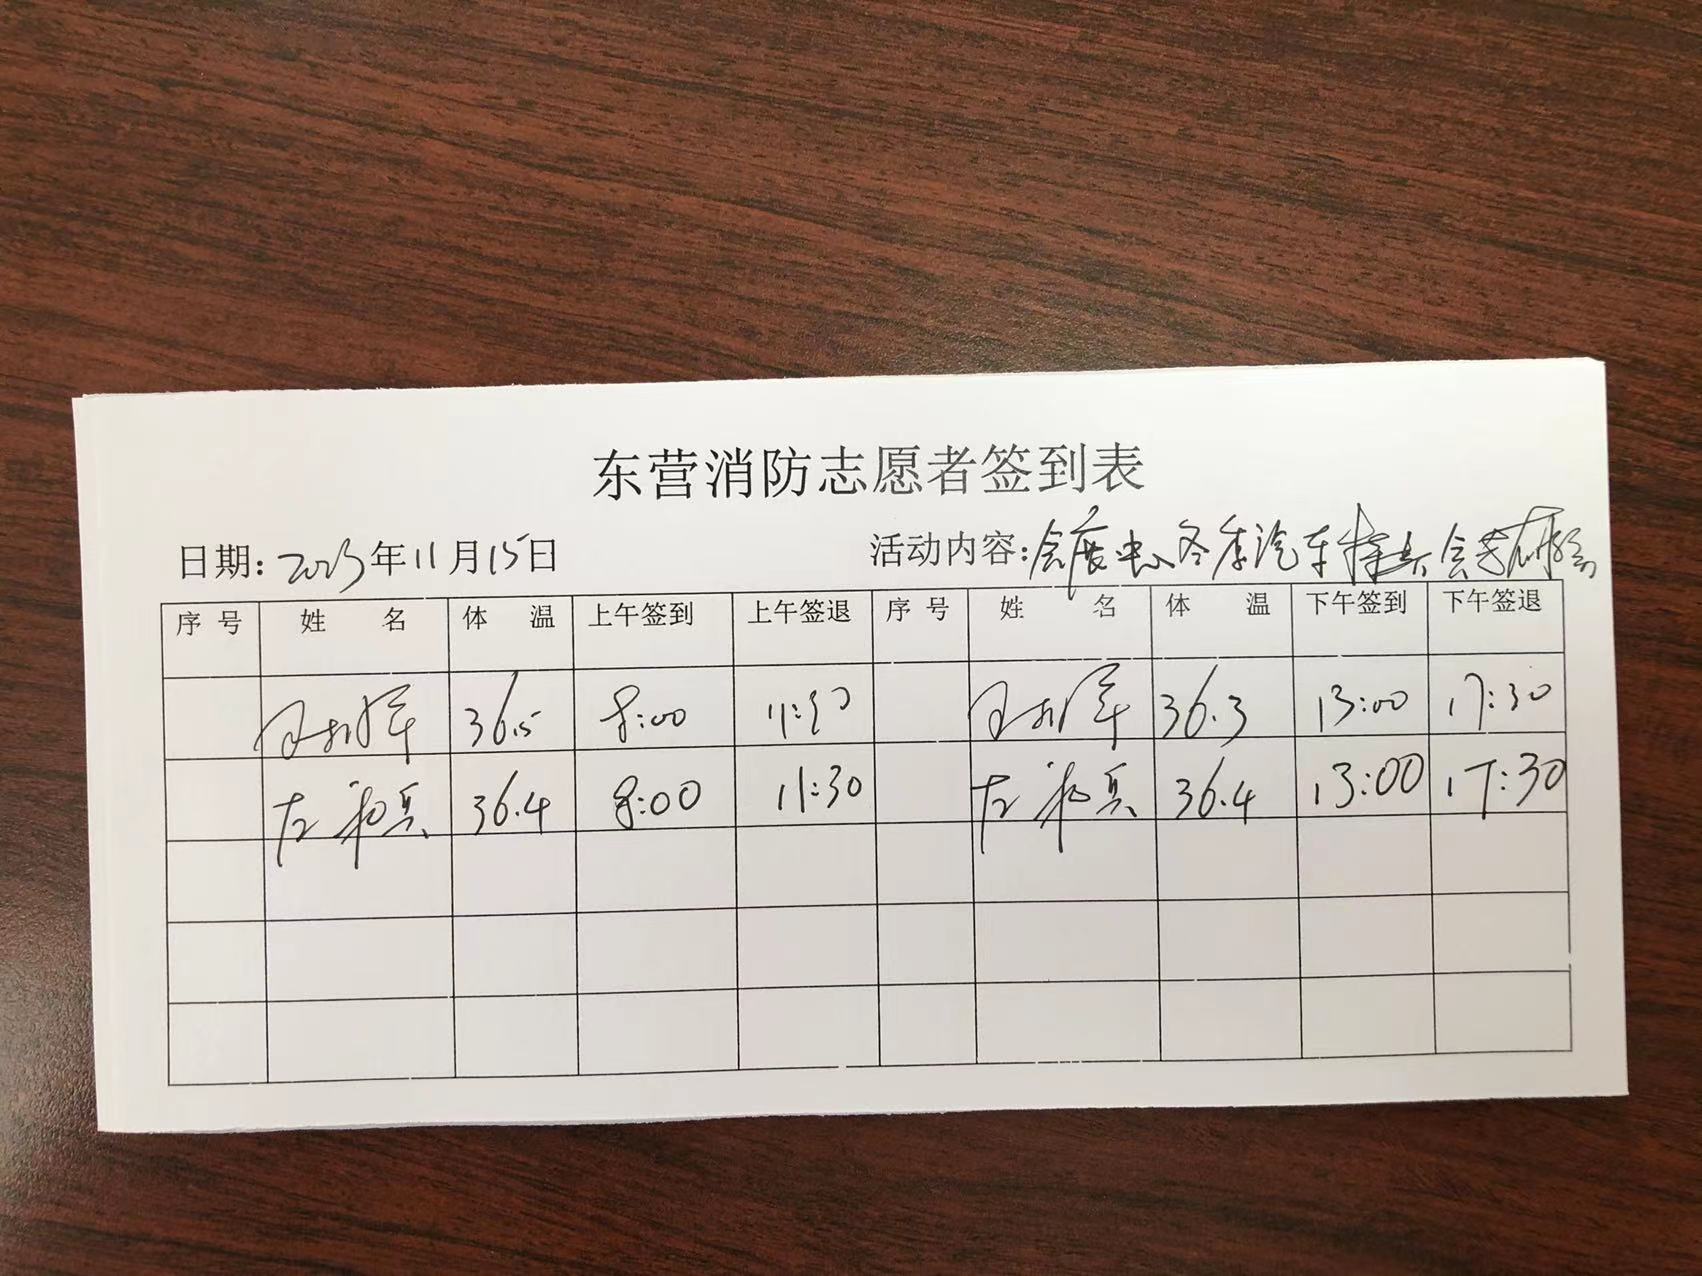 东营消防志愿者签到表
日期: 2023年11月15日 活动内容: 会展中心冬季汽车 会
序号 姓名 体温 上午签到 上午签退 序号 姓名 体温 下午签到 下午签退
36.5 8:00 11:30 36.3 13:00 17:30
左 36.4 8:00 11:30 左 36.4 13:00 17:30